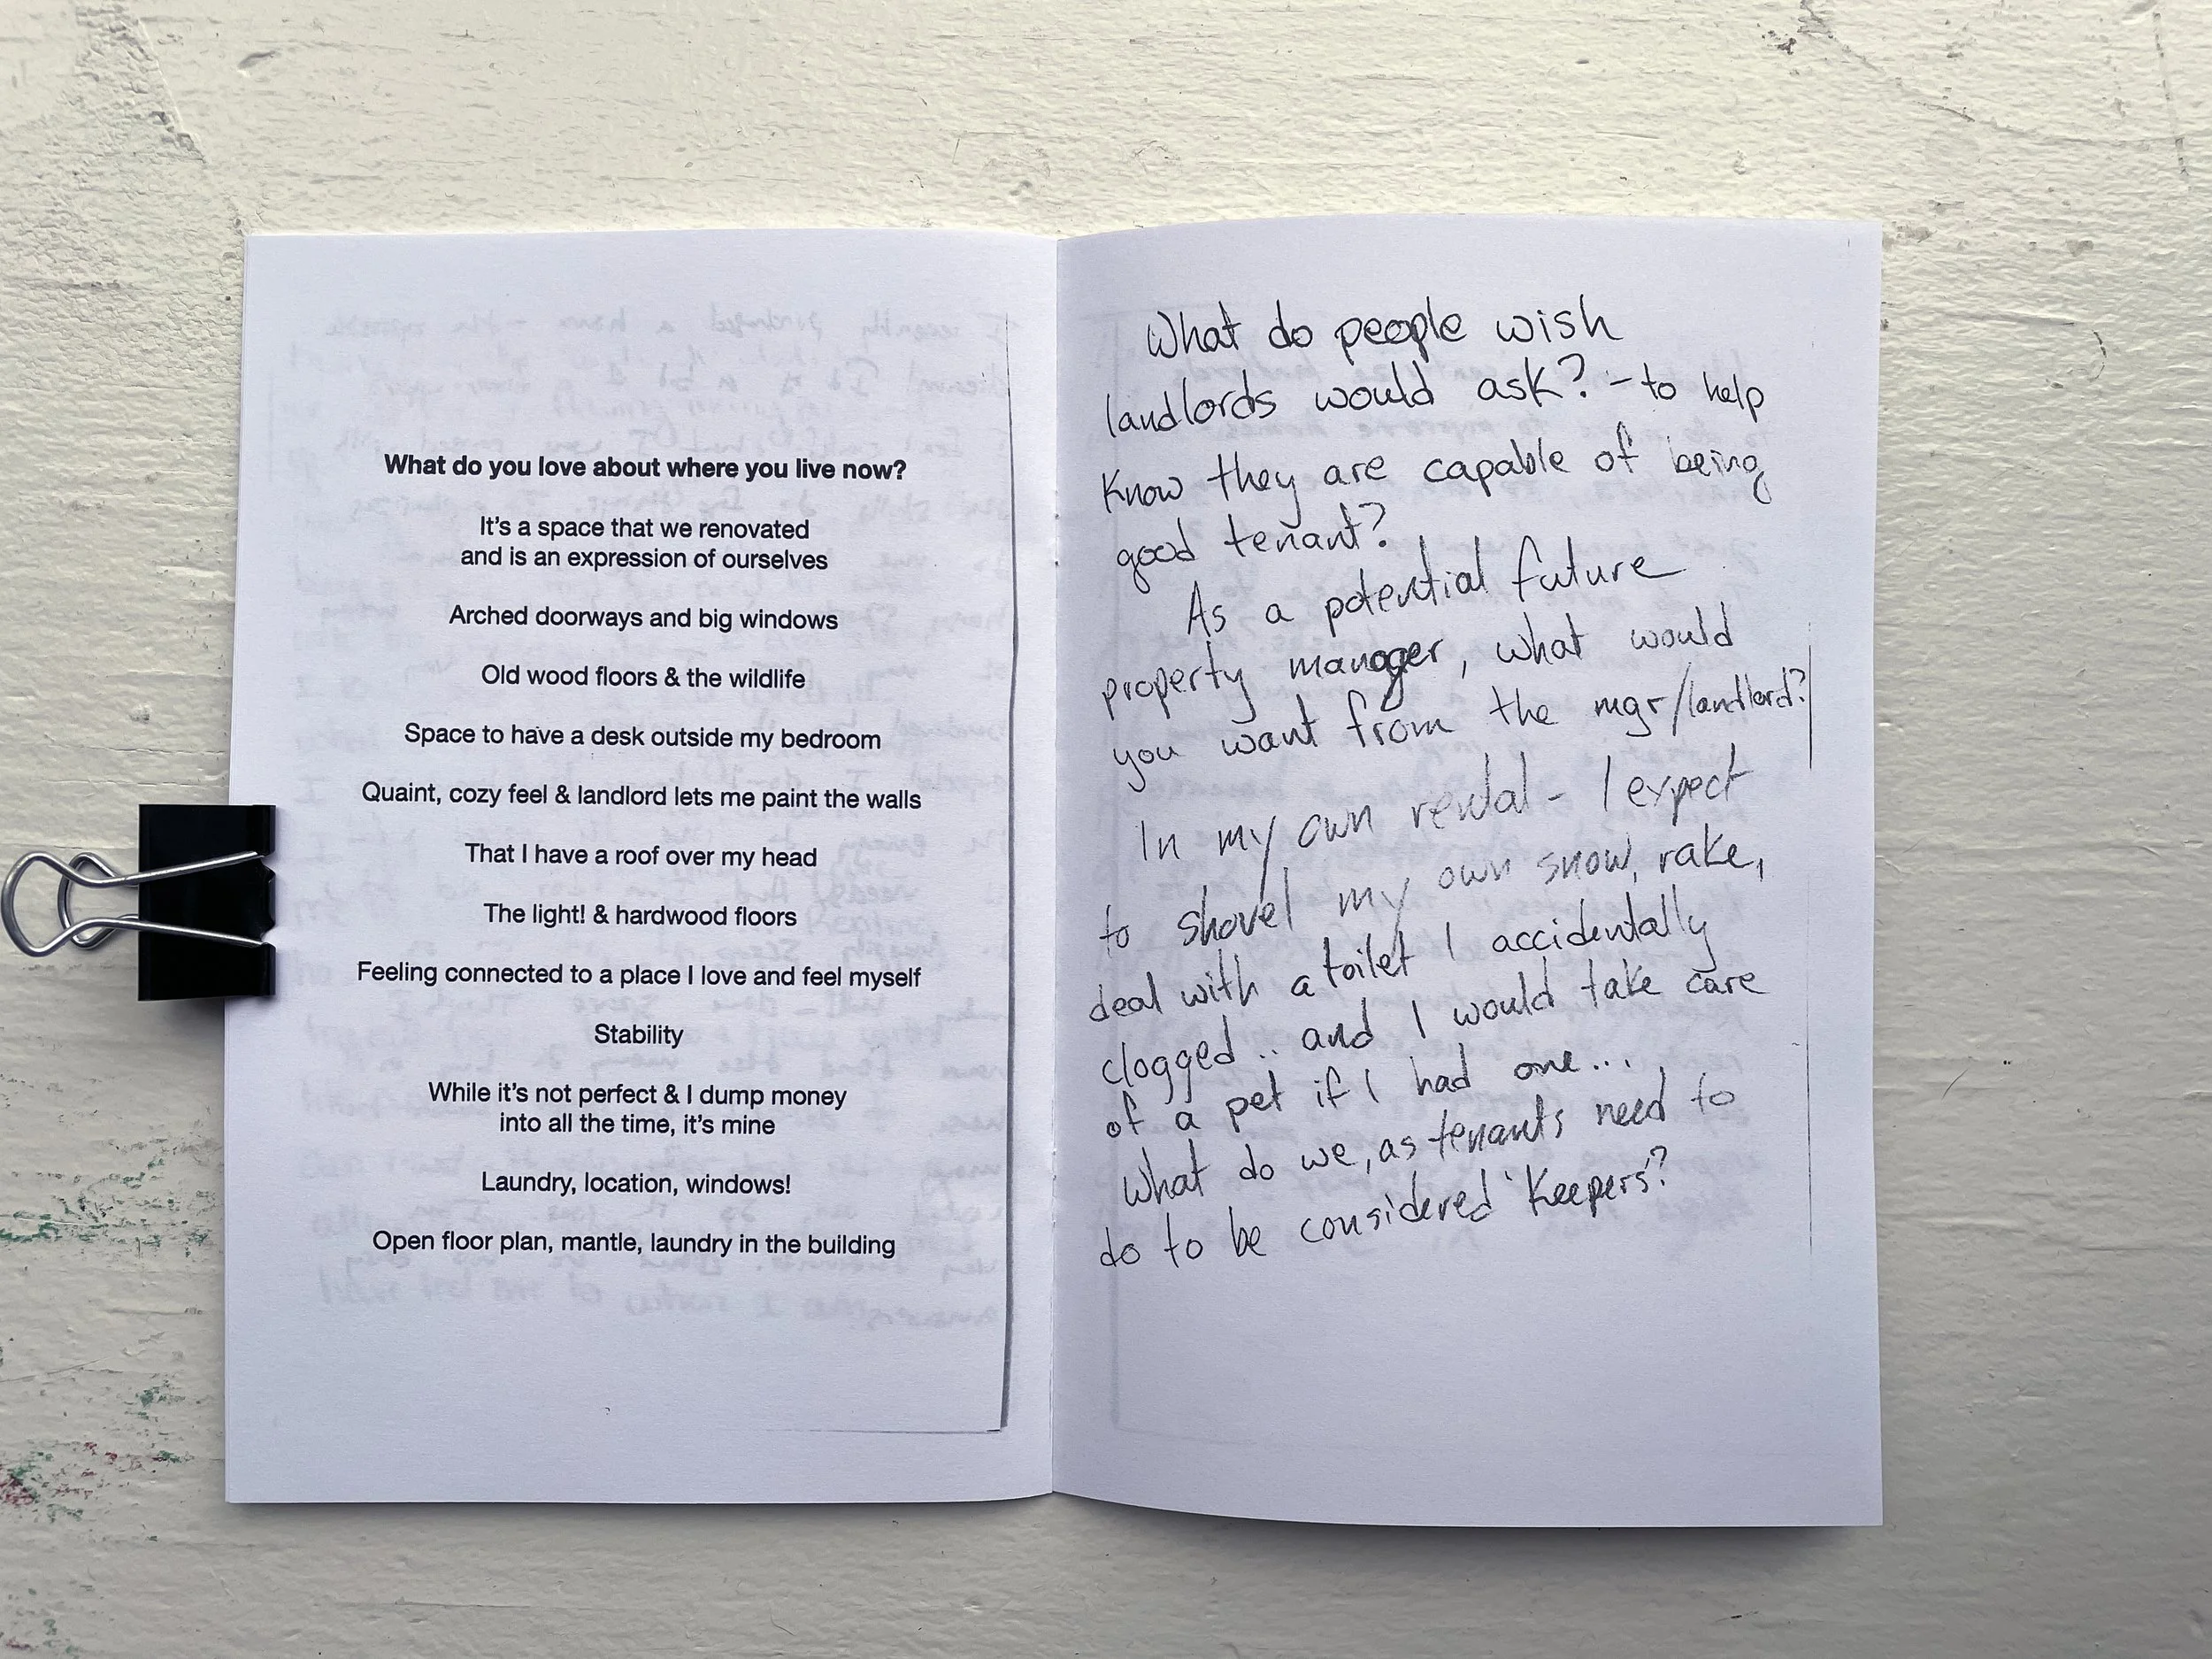 What do you love about where you live now?
It's a space that we renovated
and is an expression of ourselves
Arched doorways and big windows
Old wood floors & the wildlife
Space to have a desk outside my bedroom
Quaint, cozy feel & landlord lets me paint the walls
That I have a roof over my head
The light! & hardwood floors
Feeling connected to a place I love and feel myself
Stability
While it's not perfect & I dump money
into all the time, it's mine
Laundry, location, windows!
Open floor plan, mantle, laundry in the building
What do people wish
landlords would ask? - to help
know they are capable of being
good tenant?
As a potential future
property manager, what would
you want from the mgr/landlord?
In my own rental - I expect
to shovel my own snow, rake,
deal with a toilet I accidentally
clogged .. and I would take care
of a pet if I had one...
What do we, as tenants need to
do to be considered 'Keepers'?